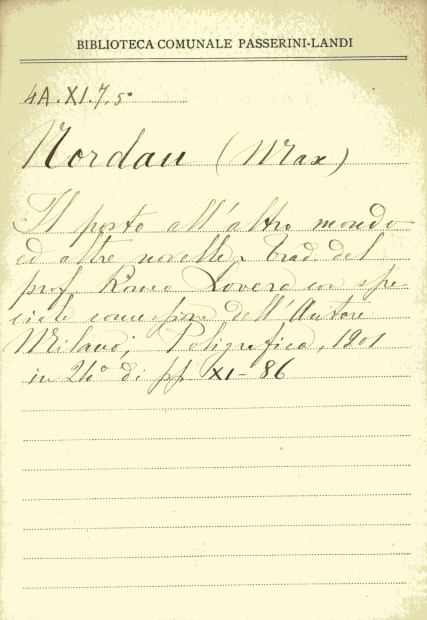 BIBLIOTECA COMUNALE PASSERINI-LANDI
4A.XI.7.5°
Nordau (Max)
Il posto all'altro mondo
ed altre novelle. Trad. del
prof. Romeo Lovera con spe-
ciale concessione dell'Autore
Milano, Poligrafica, 1901
in 24° di pp XI-86